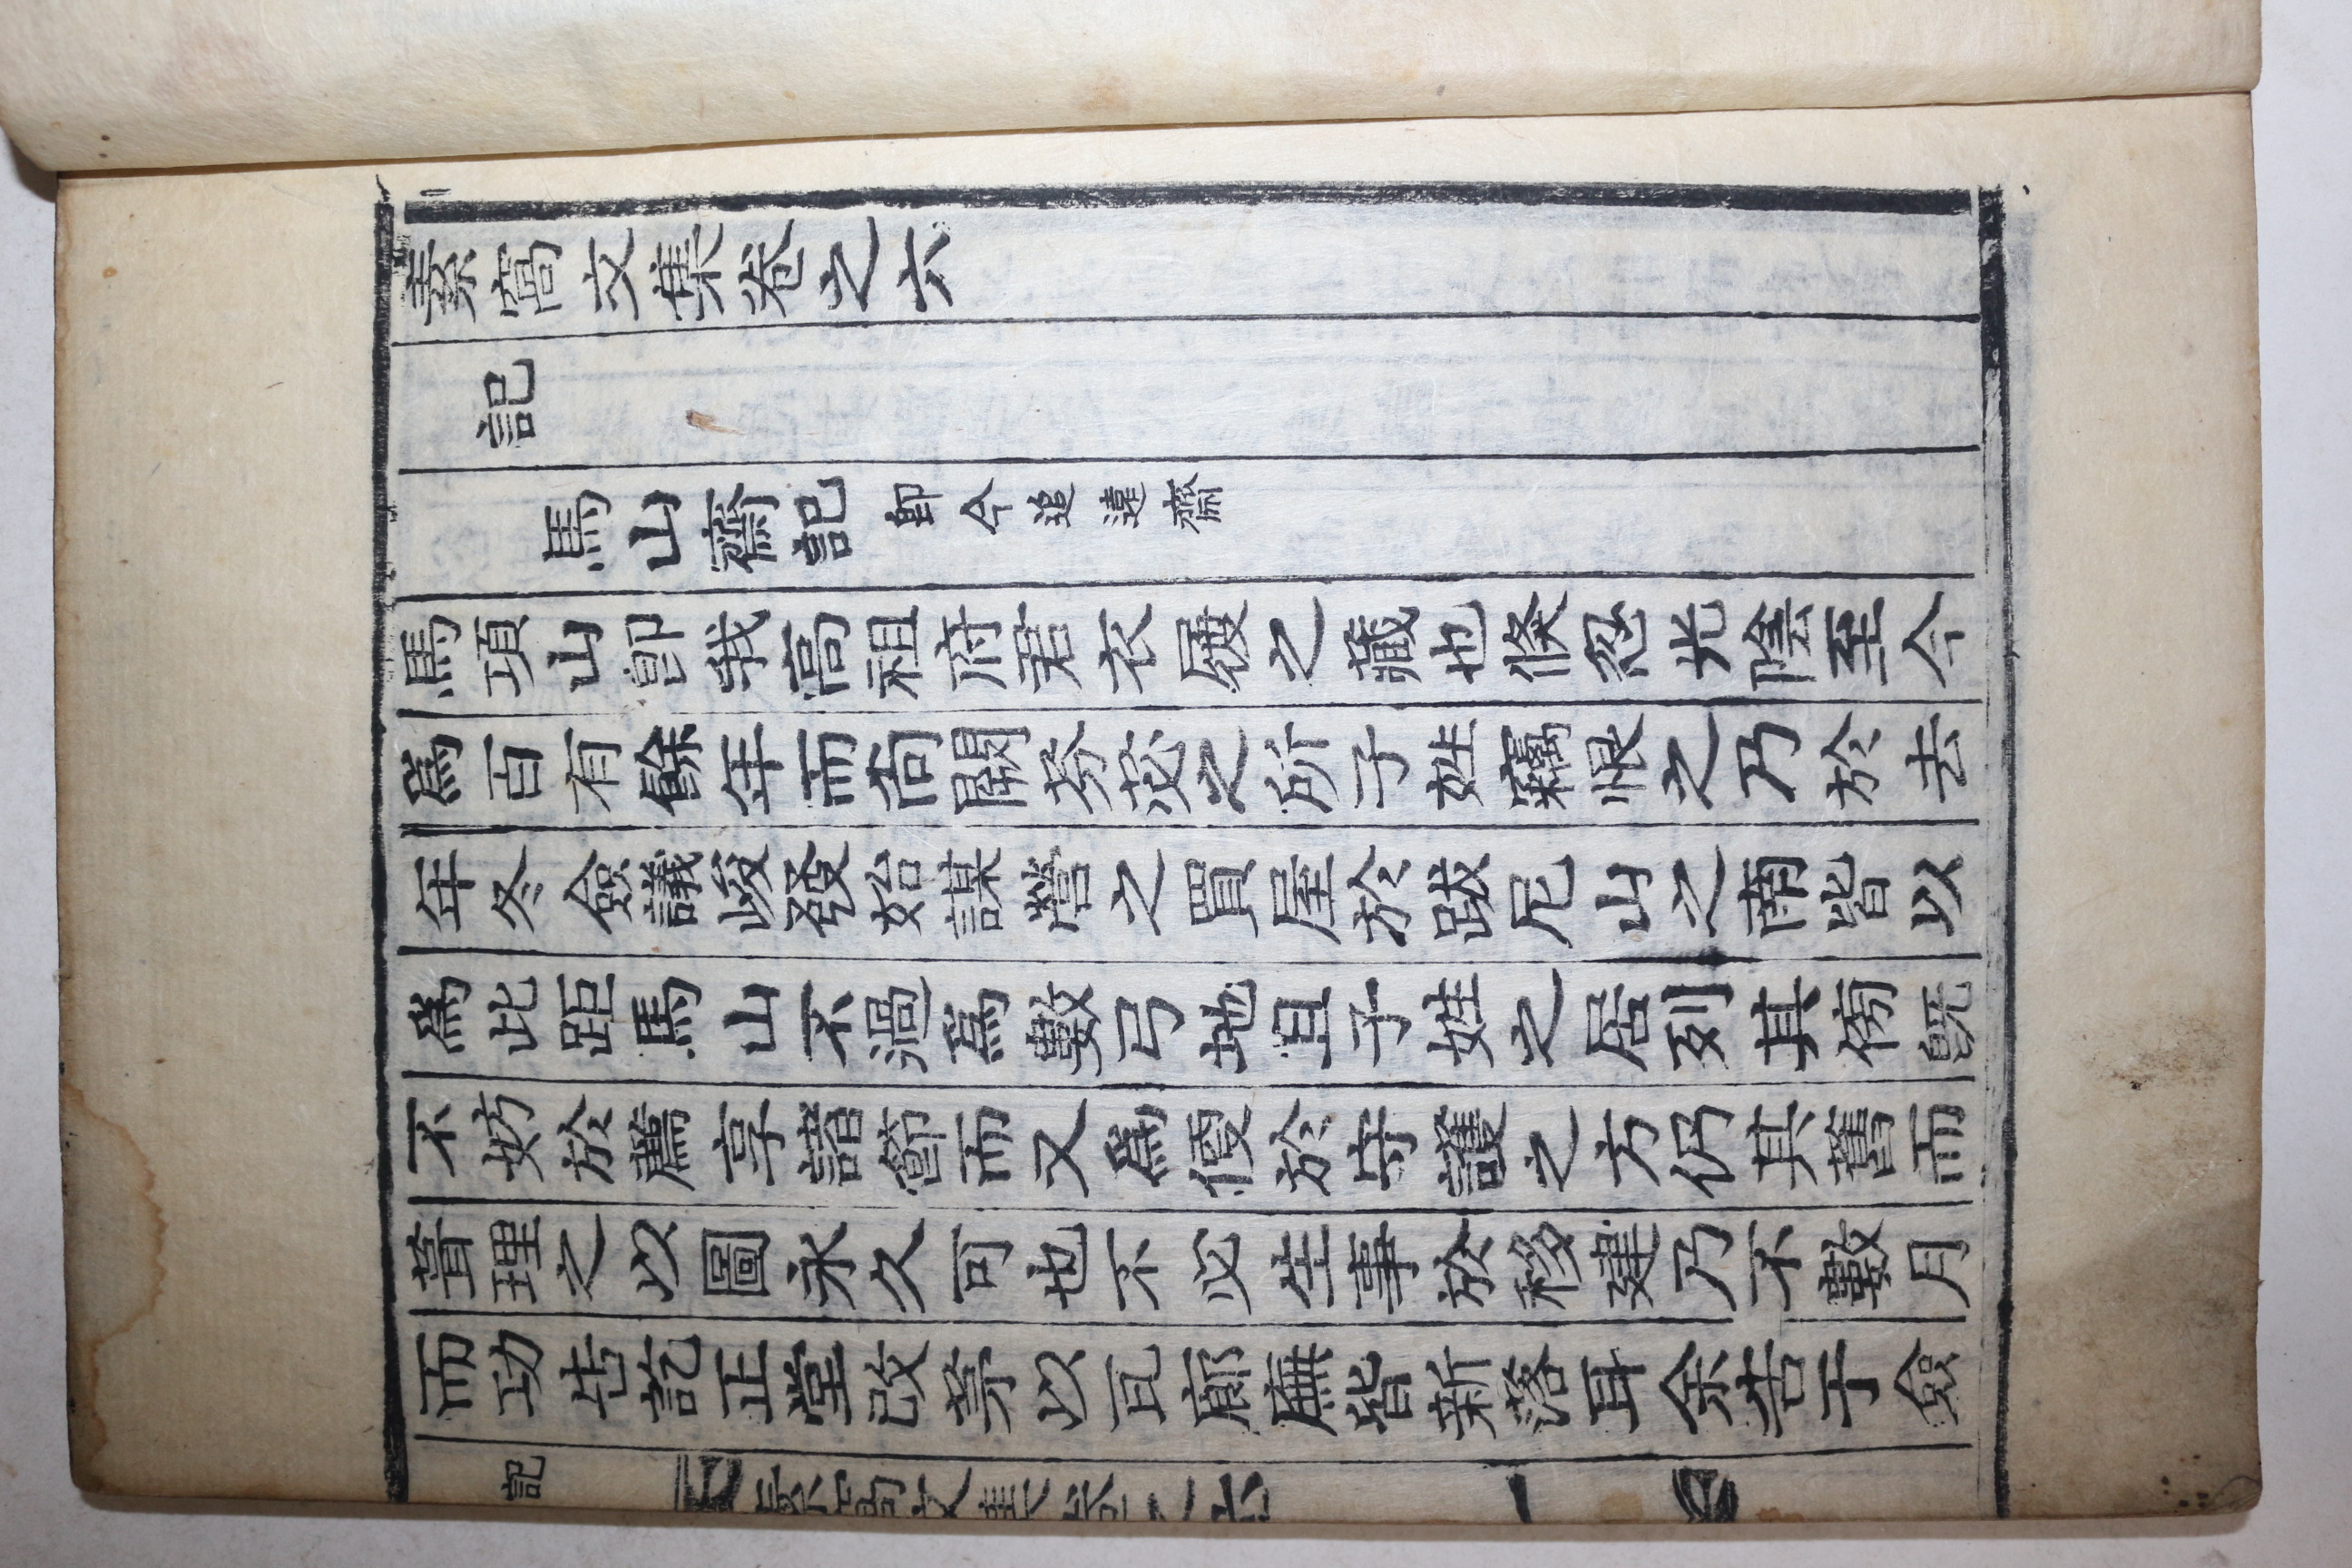 素窩文集卷之六
記
馬山齋記 卽今追遠齋
馬項山卽我高祖府君衣履之藏也倐忽光陰至今
爲百有餘年而尙闕芬苾之所子姓竊恨之乃於去
年冬僉議峻發始謀營之買屋於跋尼山之南皆以
爲此距馬山不過爲數弓地且子姓之居列其傍旣
不妨於薦享諸節而又爲便於守護之方仍其舊而
葺理之以圖永久可也不必生事於移建乃不數月
而功告訖正堂改茅以瓦廊廡皆新落耳余告于僉
記 素窩文集卷之六 一